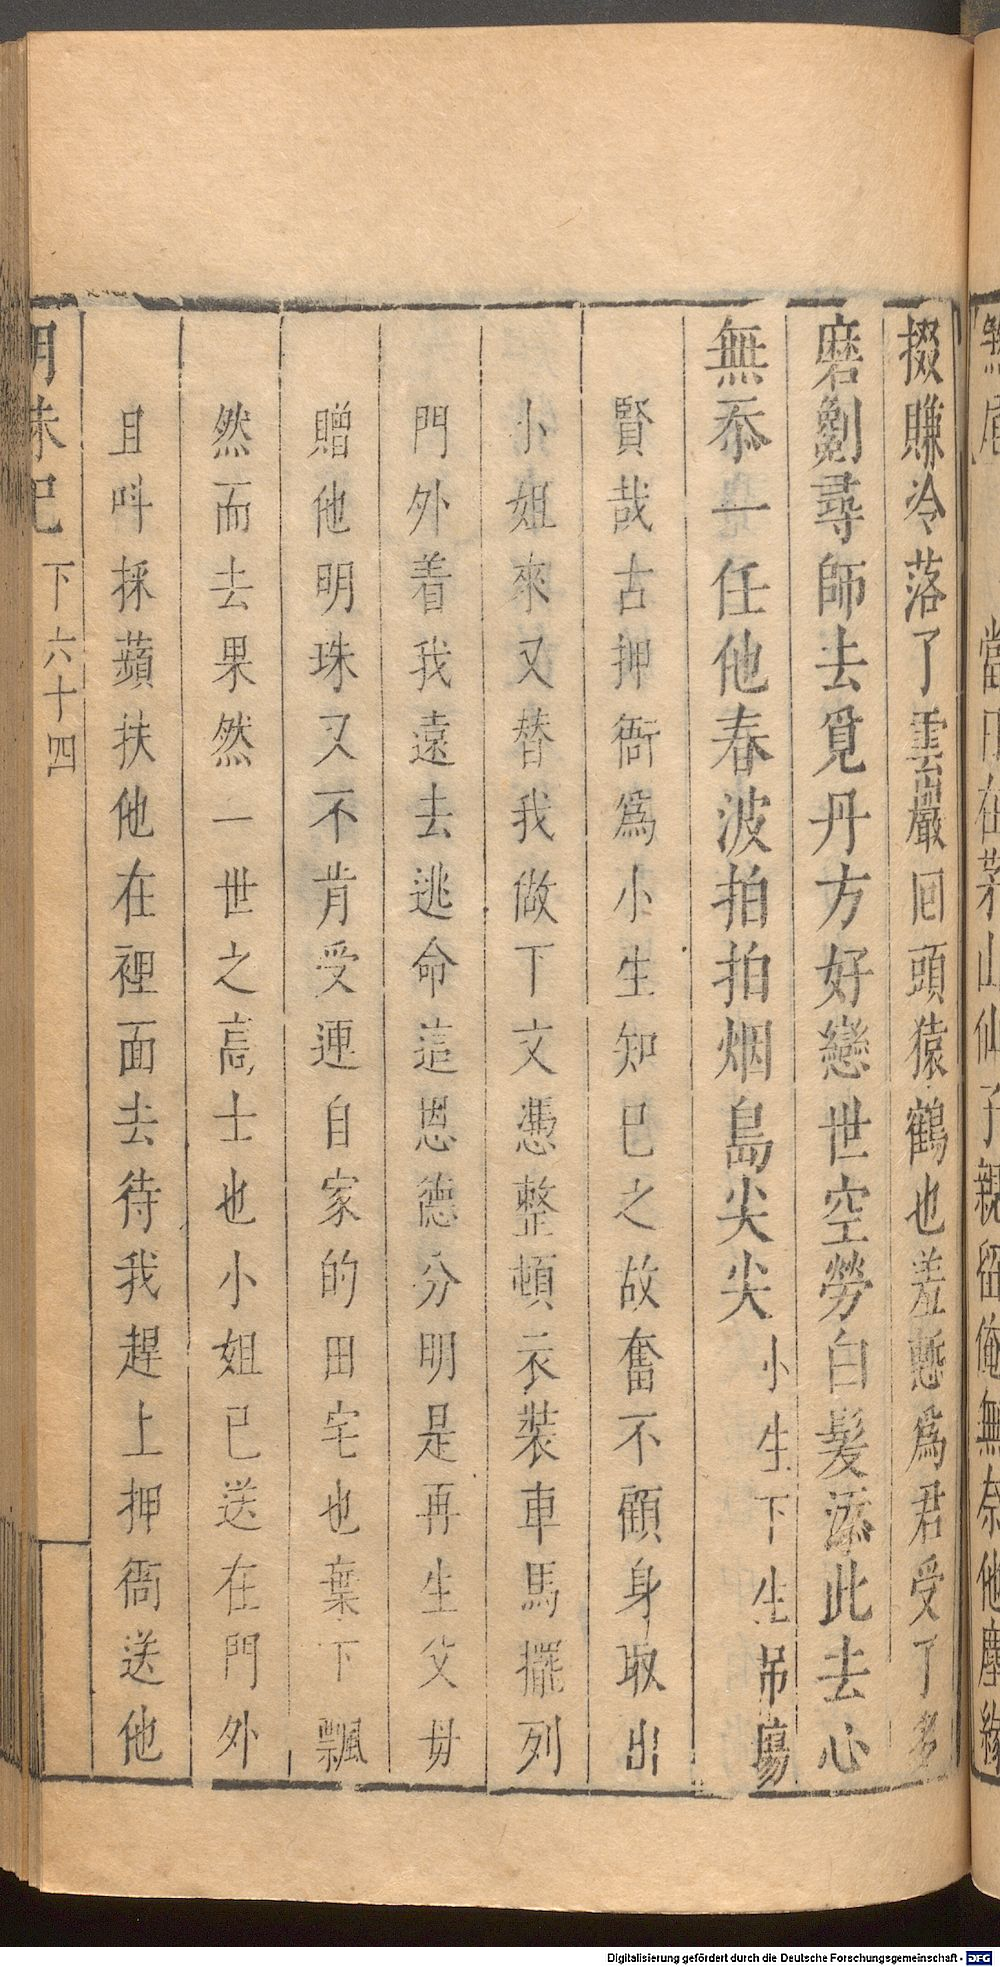 掇賺冷落了雲巖囘頭猿鶴也羞慙爲君受了多
磨劖尋師去覓丹方好戀世空勞白髪添此去心
無忝一任他春波拍拍烟島尖尖小生下生吊塲
賢哉古押衙爲小生知巳之故奮不顧身取出
小姐來又替我做下文憑整頓衣装車馬擺列
門外着我遠去逃命這恩德分明是再生父母
贈他明珠又不肯受連自家的田宅也棄下飄
然而去果然一世之高士也小姐已送在門外
且呌採蘋扶他在裡面去待我趕上押衙送他
明珠記 下 六十四
當日在茅山仙子親留俺無奈他塵緣
Digitalisierung gefördert durch die Deutsche Forschungsgemeinschaft - DFG